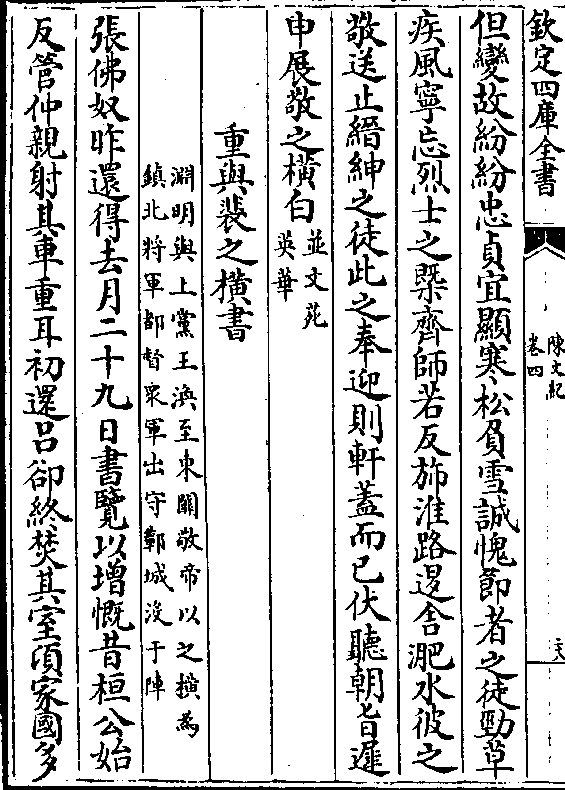 欽定四庫全書
陳文紀
卷四
六
但變故紛紛忠貞宜顯寒松負雪誠愧節者之徒勁草
疾風寧忘烈士之槩齊師若反旆淮路還舍淝水彼之
敬送止縉紳之徒此之奉迎則軒蓋而已伏聽朝旨遲
申展敬之橫白
並文苑
英華
重與裴之橫書
淵明與上黨王渙至東關敬帝以之橫為
鎮北將軍都督衆軍出守蘄城没于陣
張佛奴昨還得去月二十九日書覽以增慨昔桓公始
反管仲親射其車重耳初還吕卻終焚其室頃家國多